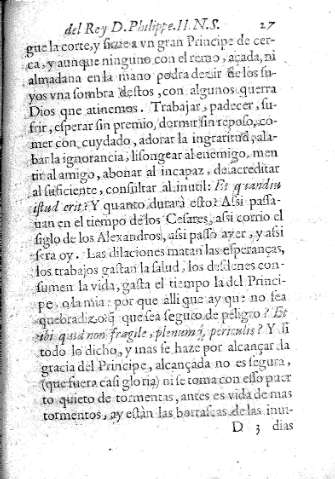 del Rey D. Phelippe. II. N. S. 27
gue la corte, y sirue a vn gran Principe de cer-
ca, y aunque ninguno con el remo, açada, ni
almadana en la mano podra dezir de los su-
yos vna sombra destos, con algunos querra
Dios que atinemos. Trabajar, padecer, su-
frir, esperar sin premio, dormir sin reposo, co-
mer con cuydado, adorar la ingratitud, ala-
bar la ignorancia, lisongear al enemigo, men
tir al amigo, abonar al incapaz, desacreditar
al suficiente, consultar al inutil: Et quandiu
istud erit? Y quanto durará esto? Assi passa-
uan en el tiempo de los Cesares, assi corrio el
siglo de los Alexandros, assi passó ayer, y assi
sera oy. Las dilaciones matan las esperanças,
los trabajos gastan la salud, los desdenes con-
sumen la vida, gasta el tiempo la del Princi-
pe, o la mia: por que alli que ay que no sea
quebradizo, o que sea seguro de peligro? Et
ibi quid non fragile, plenumq; periculis? Y si
todo lo dicho, y mas se haze por alcançar la
gracia del Principe, alcançada no es segura,
(que fuera casi gloria) ni se toma con esso puer
to quieto de tormentas, antes es vida de mas
tormentos, ay estàn las borrascas de las inui-
D 3 dias